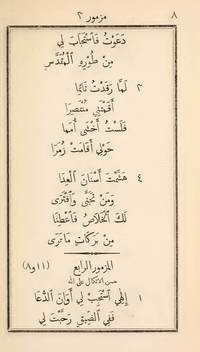 ٨ مزمور ٣
دَعَوْتُ فَاسْتَجَابَ لِي
مِنْ طُورِهِ الْمُقَدَّسِ
٣ لَمَّا رَقَدْتُ نَائِمًا
أَقَمْتَنِي مُنْتَصِرَا
فَلَسْتُ أَخْشَى أُمَمًا
حَوْلِي أَقَامَتْ زُمَرَا
٤ هَشَمْتَ أَسْنَانَ الْعِدَا
وَمَنْ تَجَنَّى وَافْتَرَى
لَكَ الْخَلَاصُ فَاعْطِنَا
مِنْ بَرَكَاتٍ مَا تَرَى
المزمور الرابع (١١و٨)
حسن الاتكال على الله
١ إِلٰهِي اسْتَجِبْ لِي أَوَانَ الدُّعَا
فَفِي الضِّيقِ رَحَّبْتَ لِي